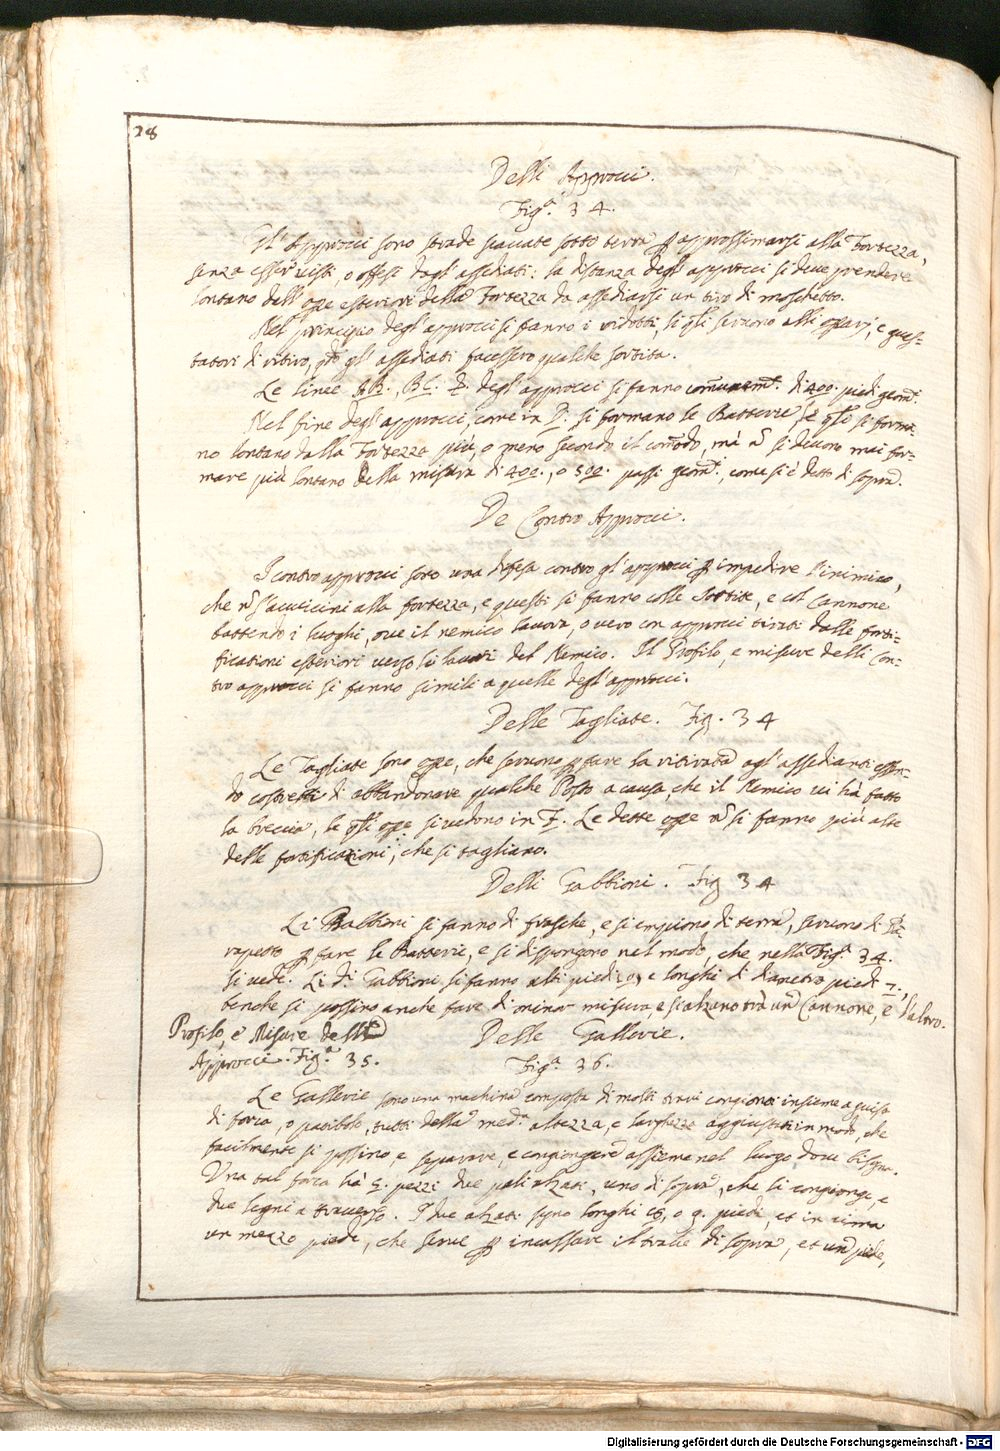 28
Delli Approcci.
Fig.ª 34.
Gl' Approcci sono strade scavate sotto terra p approssimarsi alla Fortezza,
senza esser visti, o offesi dagl' assediati: la distanza degl' approcci si deve prendere
lontano dell' ope esteriori della Fortezza da assediarsi un tiro di moschetto.
Nel principio degl' approcci si fanno i ridotti, li qli servono alli operarj, e guas-
tatori di ritiro, qdo gl' assediati facessero qualche sortita.
Le linee AB. BC. &. degl' approcci si fanno comunemte. di 400. piedi geomi.
Nel fine degl' approcci, come in D: si formano le Batterie, le qli si forma-
no lontano dalla Fortezza più, o meno secondo il comodo, mà n si devono mai for-
mare più lontano della misura di 400., o 500. passi geomi., come si è detto di sopra.
De Contro Approcci.
I contro approcci sono una difesa contro gl' approcci p impedire l'inimico,
che n s'avvicini alla fortezza, e questi si fanno colle Sortite, e col Cannone
battendo i luoghi, ove il nemico lavora, o vero con approcci tirati dalle forti-
ficationi esteriori verso li lavori del Nemico. Il Profilo, e misure delli con-
tro approcci si fanno simili a quelle degl' approcci.
Delle Tagliate. Fig. 34
Le Tagliate sono ope, che servono p fare la ritirata agl' assedianti essen-
do costretti di abbandonare qualche Posto a causa, che il Nemico vi hà fatto
la breccia, le qli ope si vedono in F. Le dette ope n si fanno più alte
delle fortificazioni, che si tagliano.
Delli Gabbioni. Fig 34
Li Gabbioni si fanno di frasche, e si empiono di terra, servono di Pa-
rapetto p fare le Batterie, e si dispongono nel modo, che nella Fig.ª 34.
si vede. Li di. Gabbioni si fanno alti piedi 10, e longhi di diametro piedi 7.,
benche si possino anche fare di minor misura, e si alzano trà un Cannone, e l'altro.
Profilo, e Misure delli
Delle Gallerie.
Approcci. Fig.ª 35.
Fig.ª 36.
Le Gallerie sono una machina composta di molti travi congionti insieme a guisa
di forca, o patibolo, tutti della med.ª altezza, e larghezza aggiustati in modo, che
facilmente si possino, e separare, e congiongere assieme nel luogo dove bisogna.
Una tal forca hà 5. pezzi due pali alzati, uno di sopra, che li congionge, e
due legni a traverso. I due alzati sono longhi 8, o 9. piedi, et in cima
un mezzo piede, che serve p incassare il trave di sopra, et un piede,
Digitalisierung gefördert durch die Deutsche Forschungsgemeinschaft - DFG